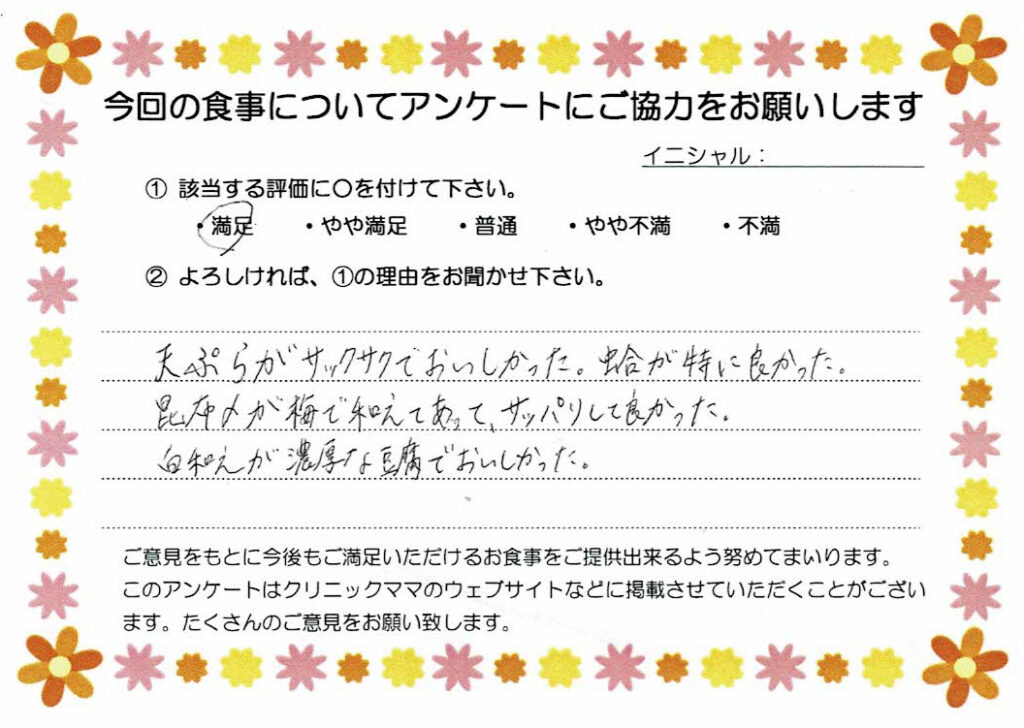 今回の食事についてアンケートにご協力をお願いします
イニシャル：
① 該当する評価に〇を付けて下さい。
・満足 ・やや満足 ・普通 ・やや不満 ・不満
② よろしければ、①の理由をお聞かせ下さい。
天ぷらがサックサクでおいしかった。蛤が特に良かった。
昆布〆が梅で和えてあって、サッパリして良かった。
白和えが濃厚な豆腐でおいしかった。
ご意見をもとに今後もご満足いただけるお食事をご提供出来るよう努めてまいります。
このアンケートはクリニックママのウェブサイトなどに掲載させていただくことがござい
ます。たくさんのご意見をお願い致します。